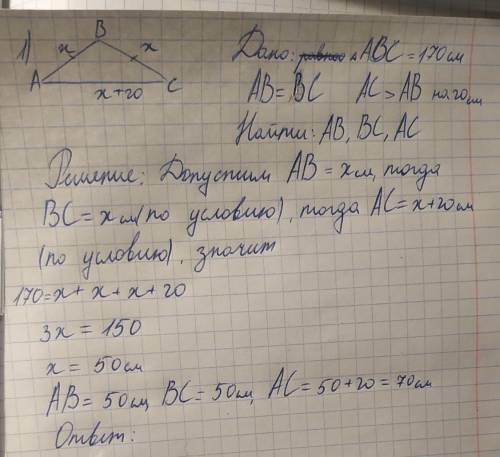 1)
B
x x
A C
x+20
Дано: ΔABC = 170см
AB = BC AC > AB на 20см
Найти: AB, BC, AC
Решение: Допустим AB = x см, тогда
BC = x см (по условию), тогда AC = x+20см
(по условию), значит
170 = x + x + x + 20
3x = 150
x = 50см
AB = 50см, BC = 50см, AC = 50+20 = 70см
Ответ: